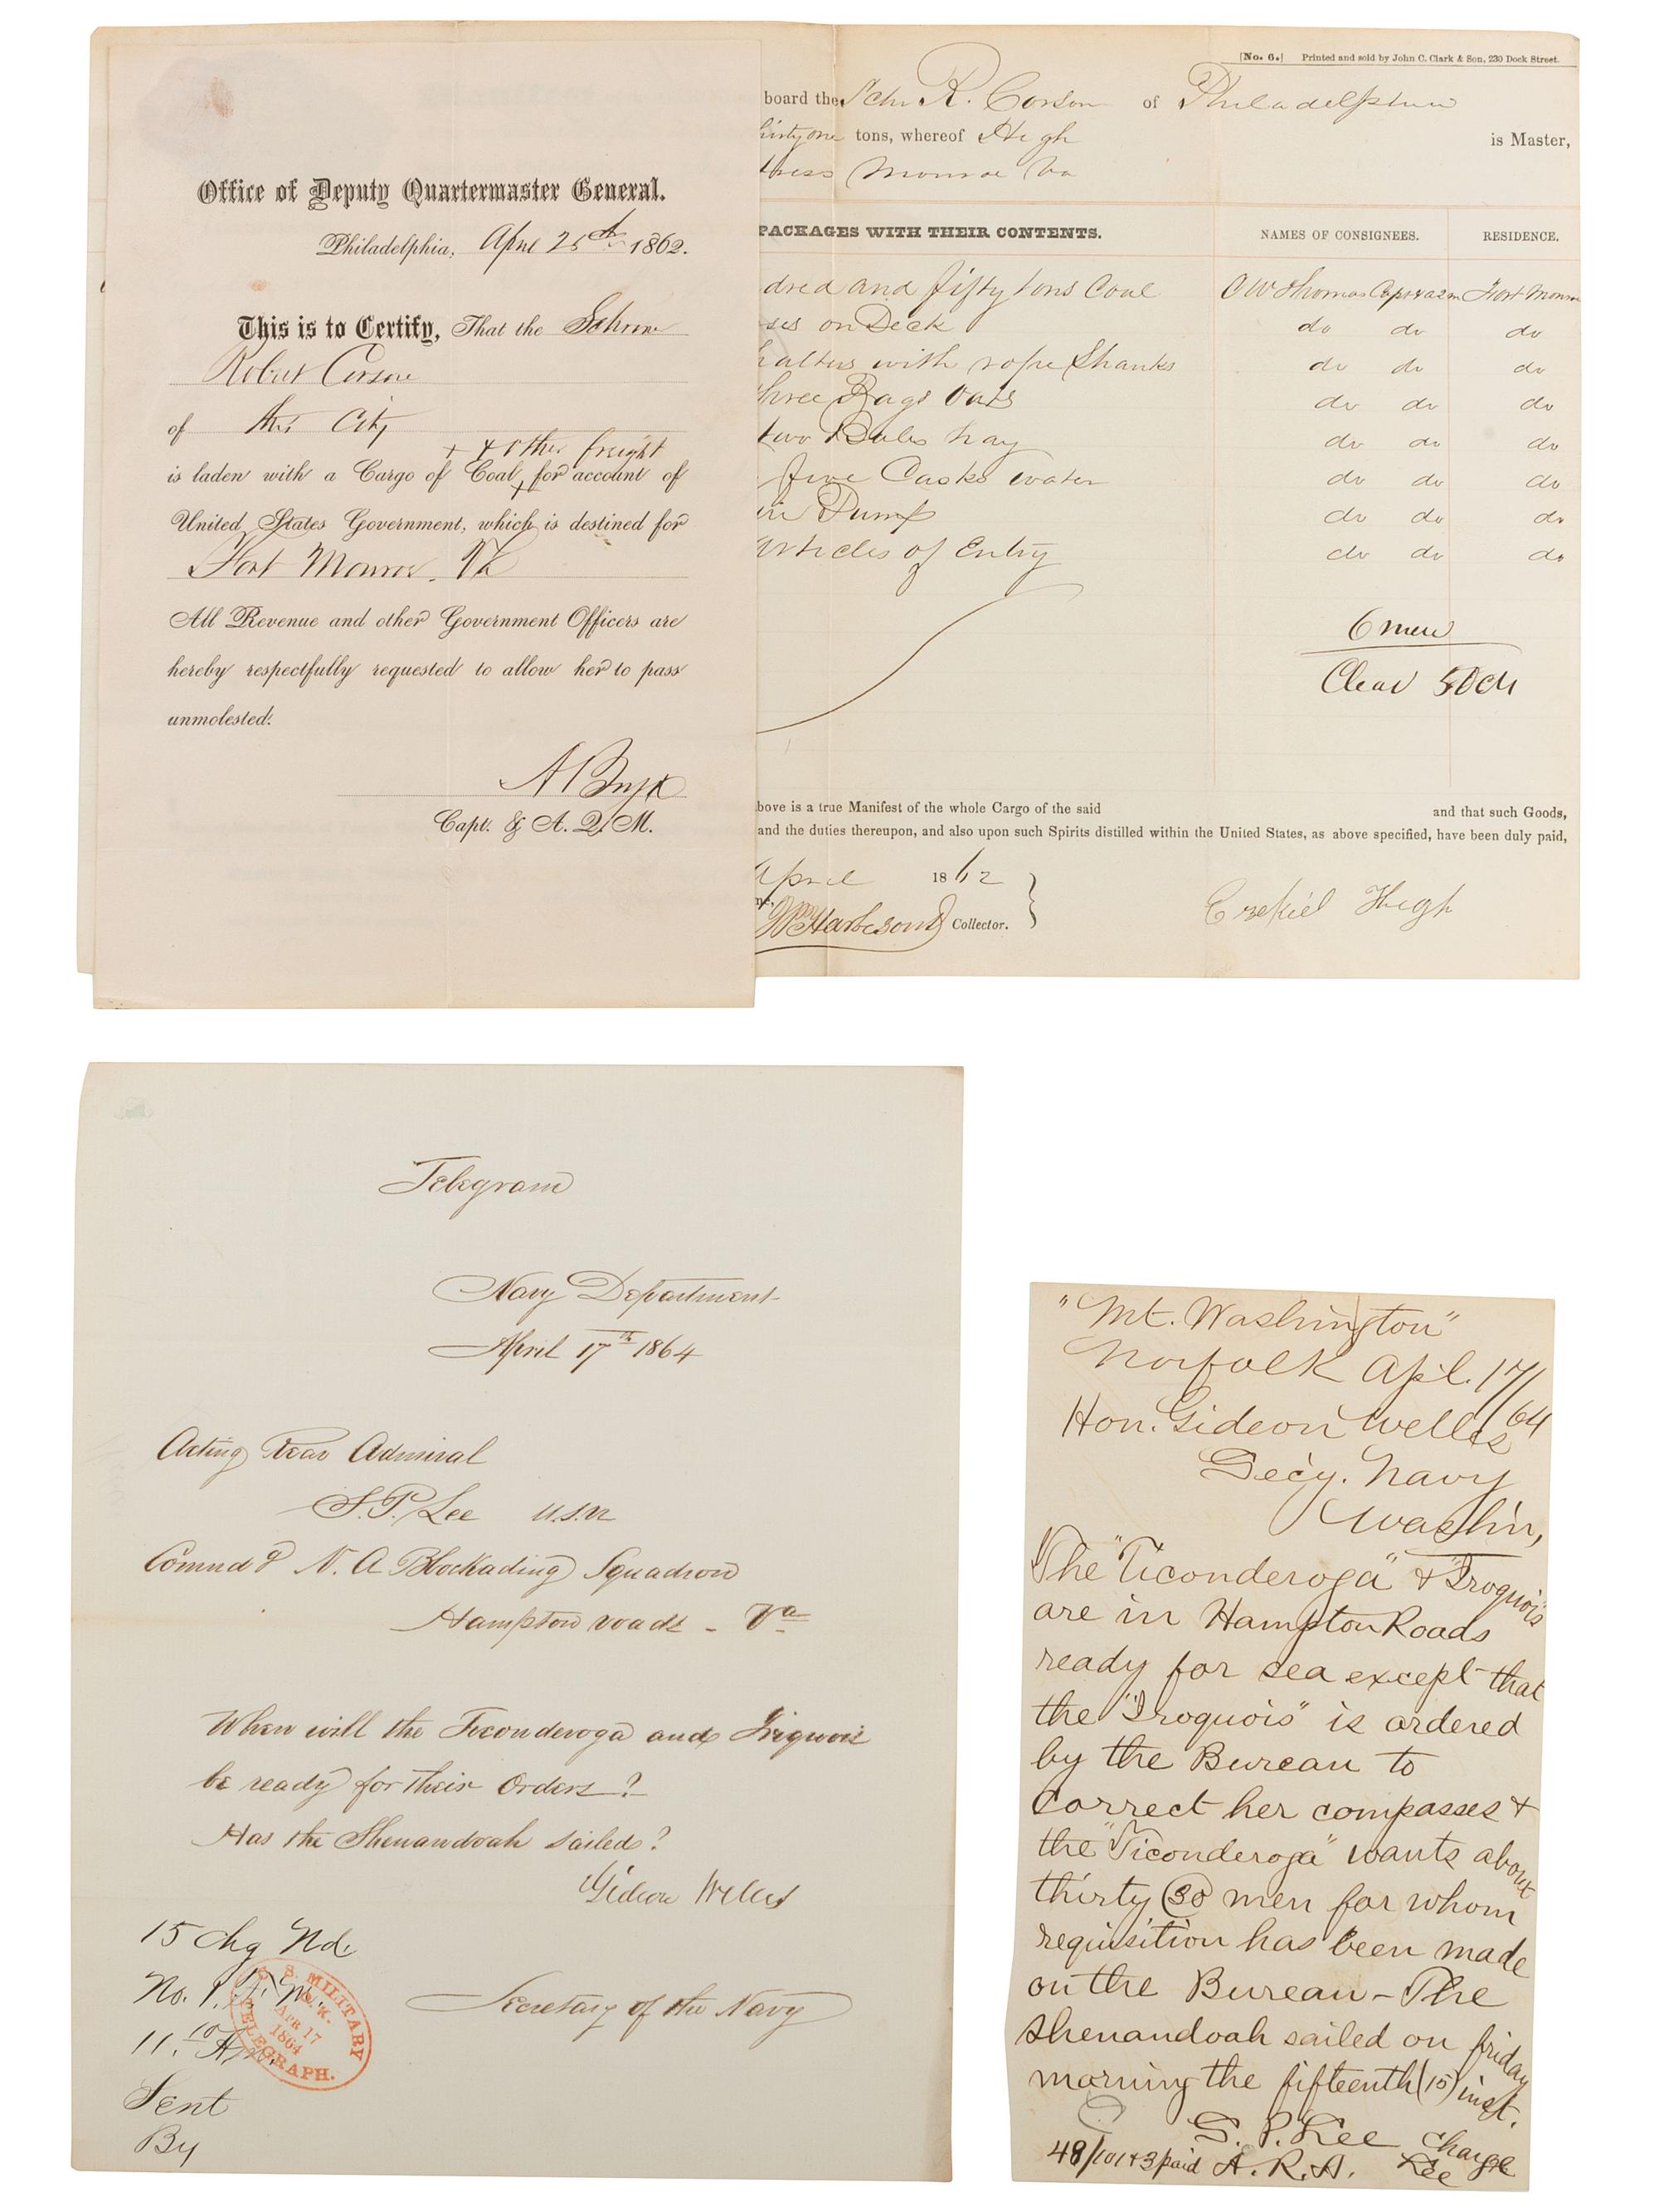 Office of Deputy Quartermaster General.
Philadelphia, April 25th 1862.
This is to Certify, That the Schrone
Robert Corson
of this City
+ & other freight
is laden with a Cargo of Coal, for account of
United States Government, which is destined for
Fort Monroe. Va
All Revenue and other Government Officers are
hereby respectfully requested to allow her to pass
unmolested.
Capt. & A. Q. M.
[No. 6.] Printed and sold by John C. Clark & Son, 230 Dock Street.
board the Schr R. Corson of Philadelphia
thirty one tons, whereof High is Master,
tress Monroe Va
PACKAGES WITH THEIR CONTENTS. NAMES OF CONSIGNEES. RESIDENCE.
dred and fifty tons Coal C W Thomas Capt & a2m Fort Monroe
ses on Deck do do do
halters with rope Shanks do do do
three Bags Oats do do do
two Bales hay do do do
five Casks water do do do
Pump do do do
Articles of Entry do do do
6 men
Clear
bove is a true Manifest of the whole Cargo of the said and that such Goods,
and the duties thereupon, and also upon such Spirits distilled within the United States, as above specified, have been duly paid,
April 1862
Wm Harbeson D Collector.
Ezekiel High
Telegram
Navy Department
April 17th 1864
Acting Rear Admiral
S. P. Lee U.S.N
Comnd'g N. A Blockading Squadron
Hampton roads - Va
When will the Ticonderoga and Iriquois
be ready for their Orders?
Has the Shenandoah sailed?
Gideon Welles
Secretary of the Navy
15 chg Nd.
No. 1
11.10 Am.
Sent
By
U. S. MILITARY
APR 17
1864
TELEGRAPH.
"Mt. Washington"
Norfolk Apl. 17/64
Hon. Gideon Welles
Secy. Navy
Washn,
The "Ticonderoga" & "Iroquois"
are in Hampton Roads
ready for sea except that
the "Iroquois" is ordered
by the Bureau to
correct her compasses &
the "Ticonderoga" wants about
thirty (30) men for whom
requisition has been made
on the Bureau - The
Shenandoah sailed on friday
morning the fifteenth (15) inst.
S. P. Lee
A. R. A.
Charge
Lee
48/101 & 3 paid